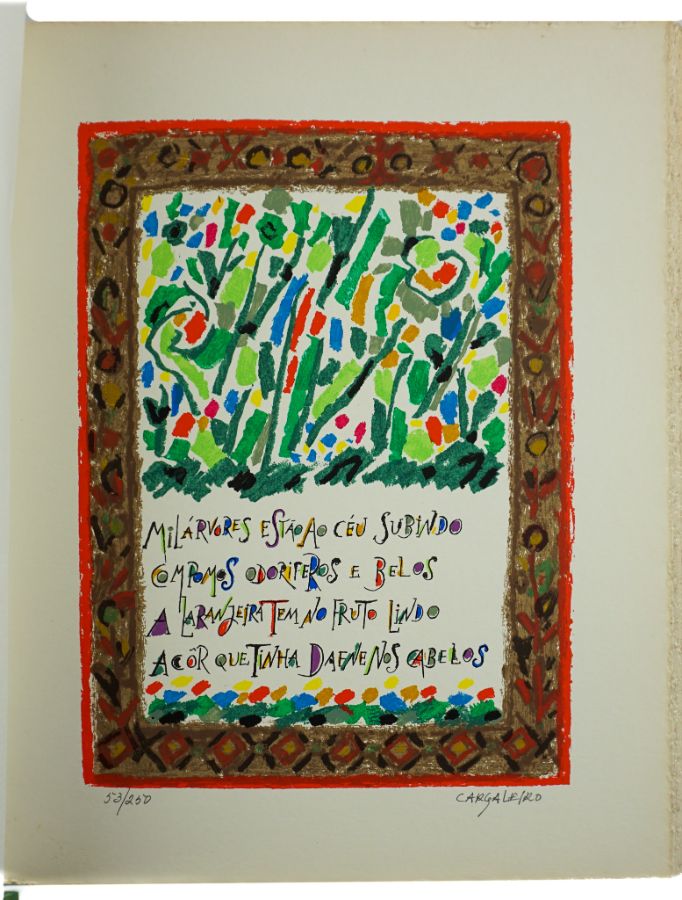 MIL ÁRVORES ESTÃO AO CÉU SUBINDO
COM POMOS ODORIFEROS E BELOS
A LARANJEIRA TEM NO FRUTO LINDO
A CÔR QUE TINHA DAFNE NOS CABELOS
53/250
CARGALEIRO